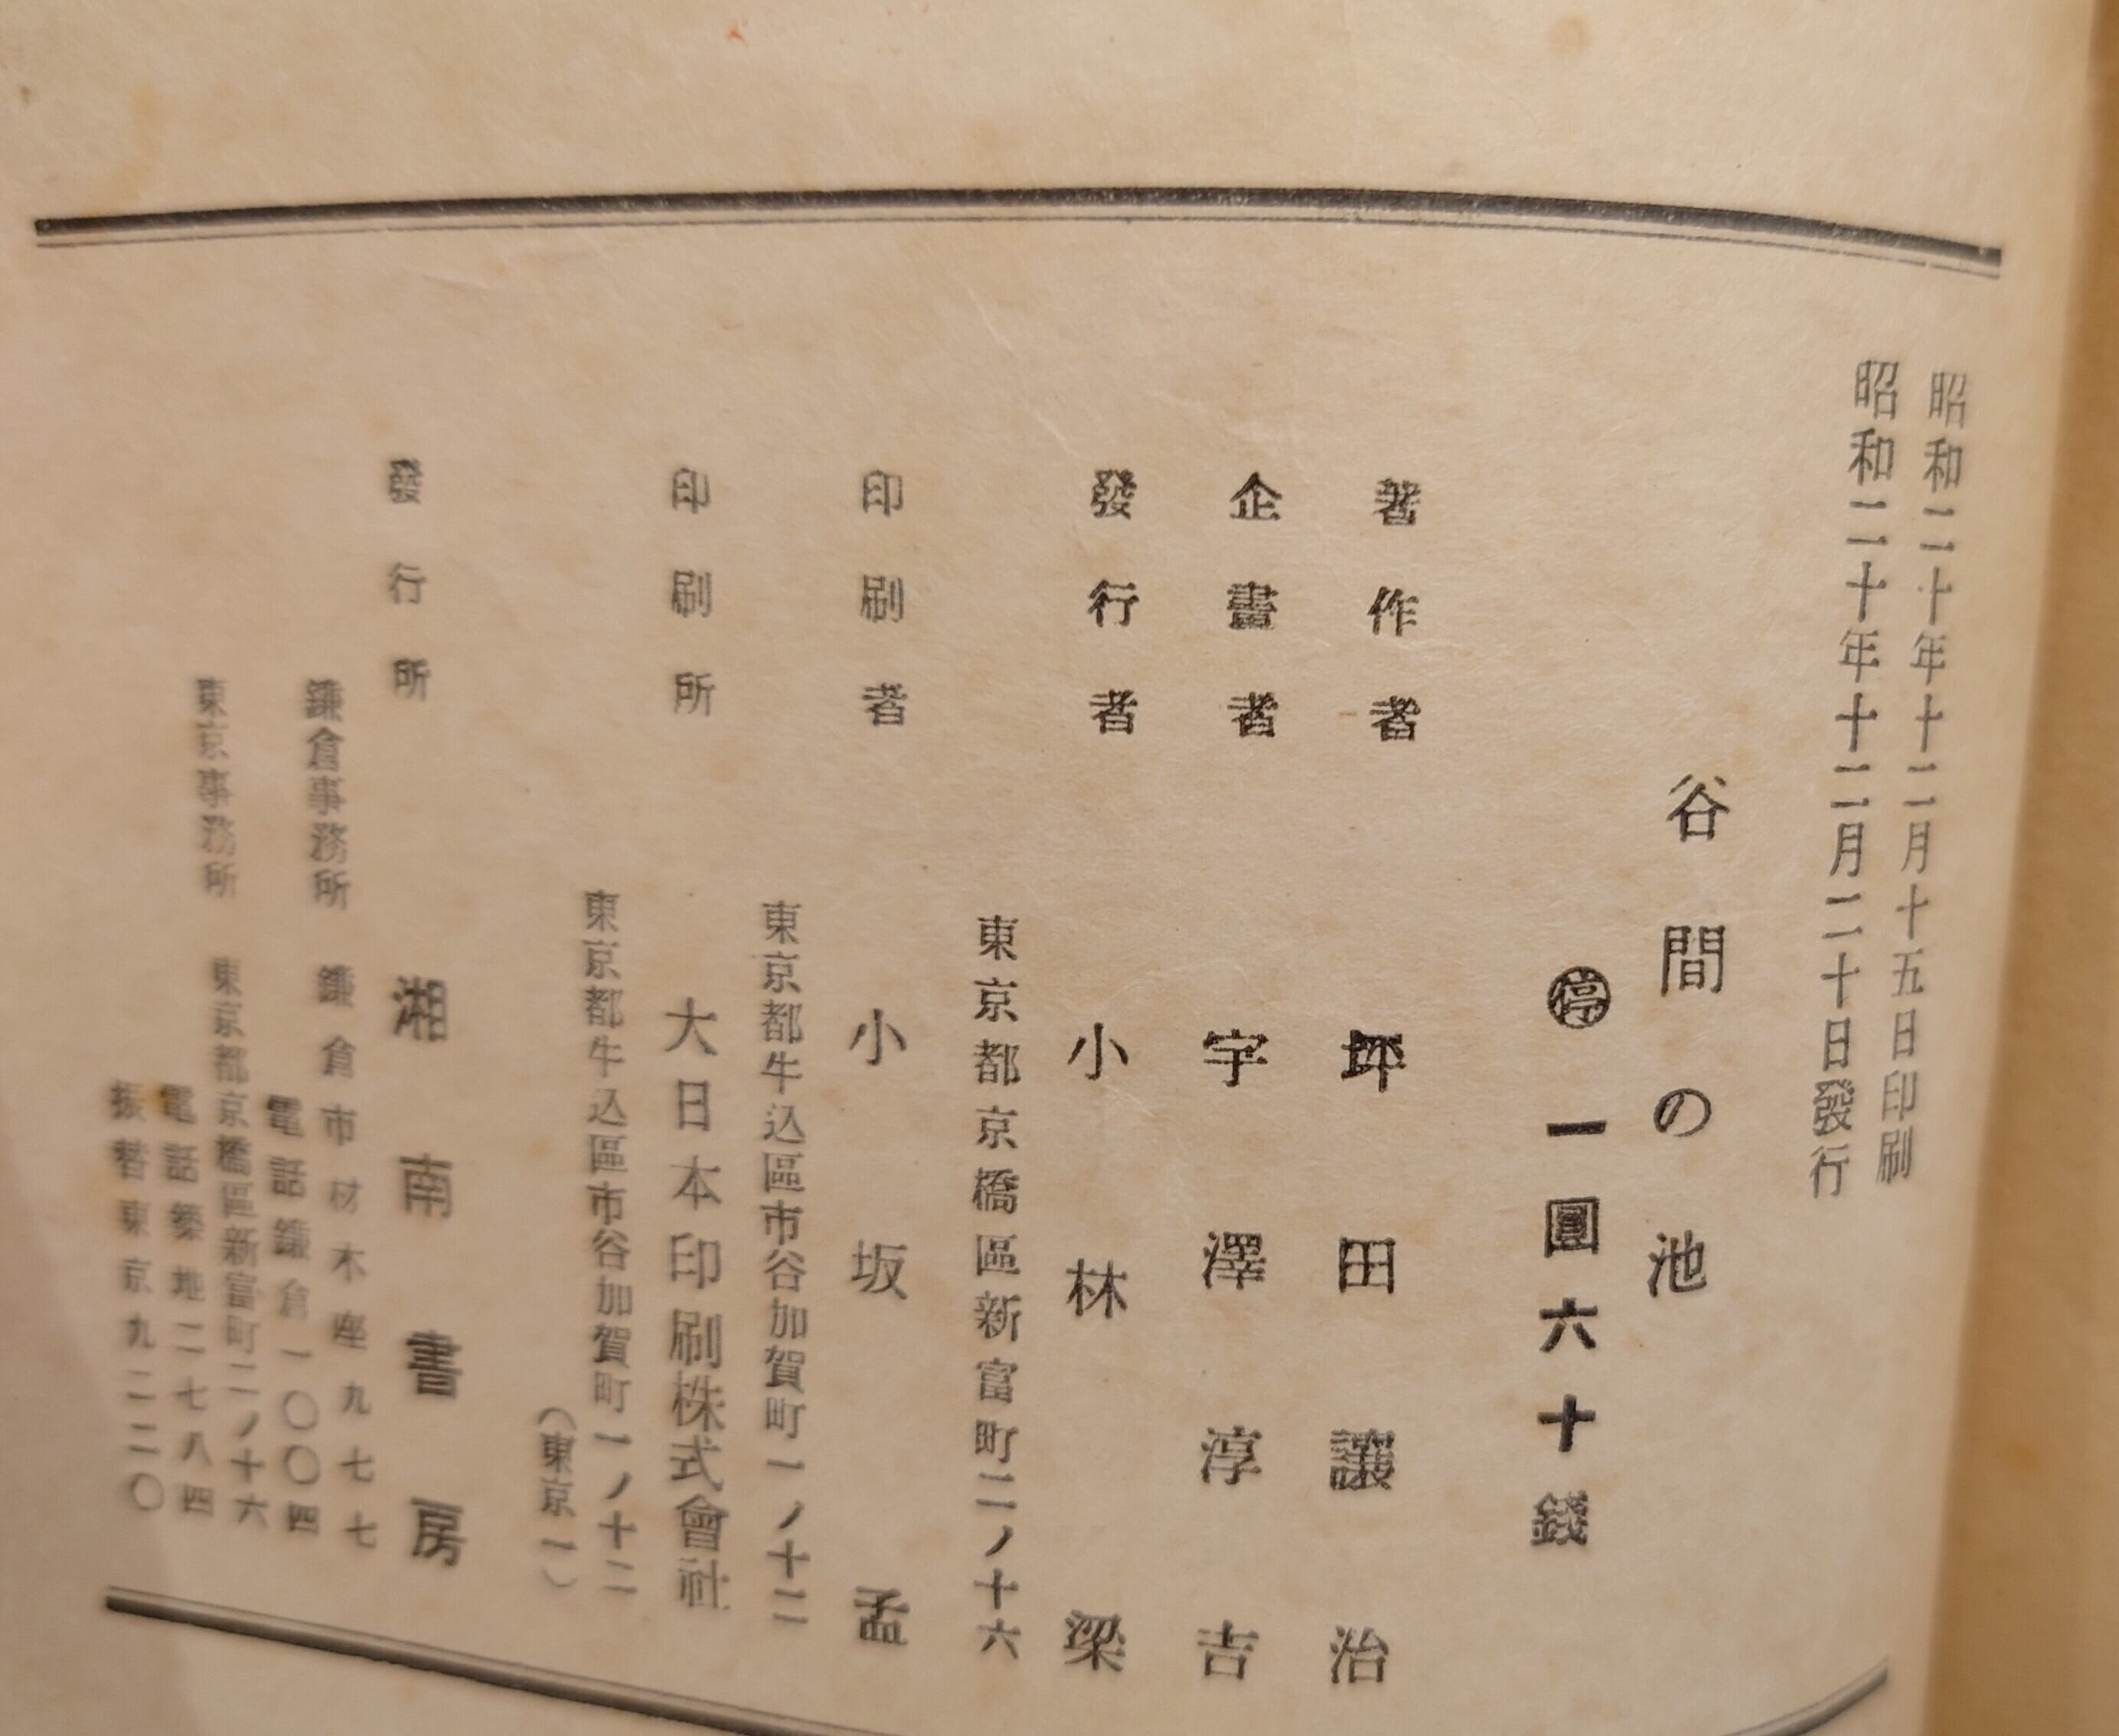 昭和二十年十二月十五日印刷
昭和二十年十二月二十日發行
谷間の池
停 一圓六十錢
著作者 坪田讓治
企畫者 宇澤淳吉
發行者 小林梁
東京都京橋區新富町二ノ十六
印刷者 小坂孟
東京都牛込區市谷加賀町一ノ十二
印刷所 大日本印刷株式會社
東京都牛込區市谷加賀町一ノ十二
(東京一)
發行所 湘南書房
鎌倉事務所 鎌倉市材木座九七七
電話鎌倉一〇〇四
東京事務所 東京都京橋區新富町二ノ十六
電話築地二七八四
振替東京九二二〇